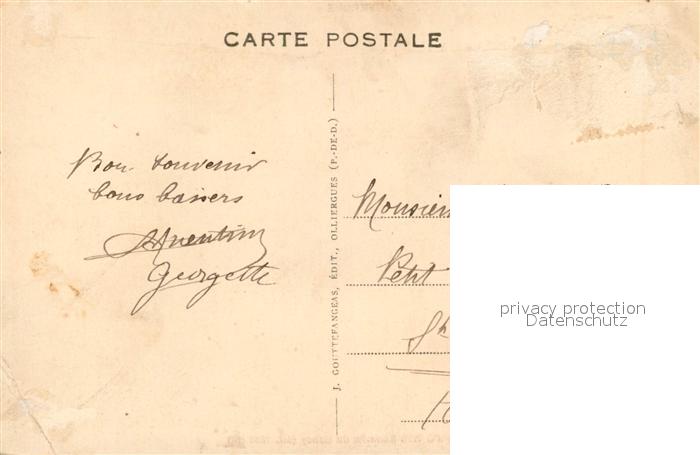 CARTE POSTALE
Bon souvenir
bons baisers
Georgette
J. GOUTTEFANGEAS, ÉDIT., OLLIERGUES (P.-DE-D.)
Monsieur
Petit
privacy protection
Datenschutz